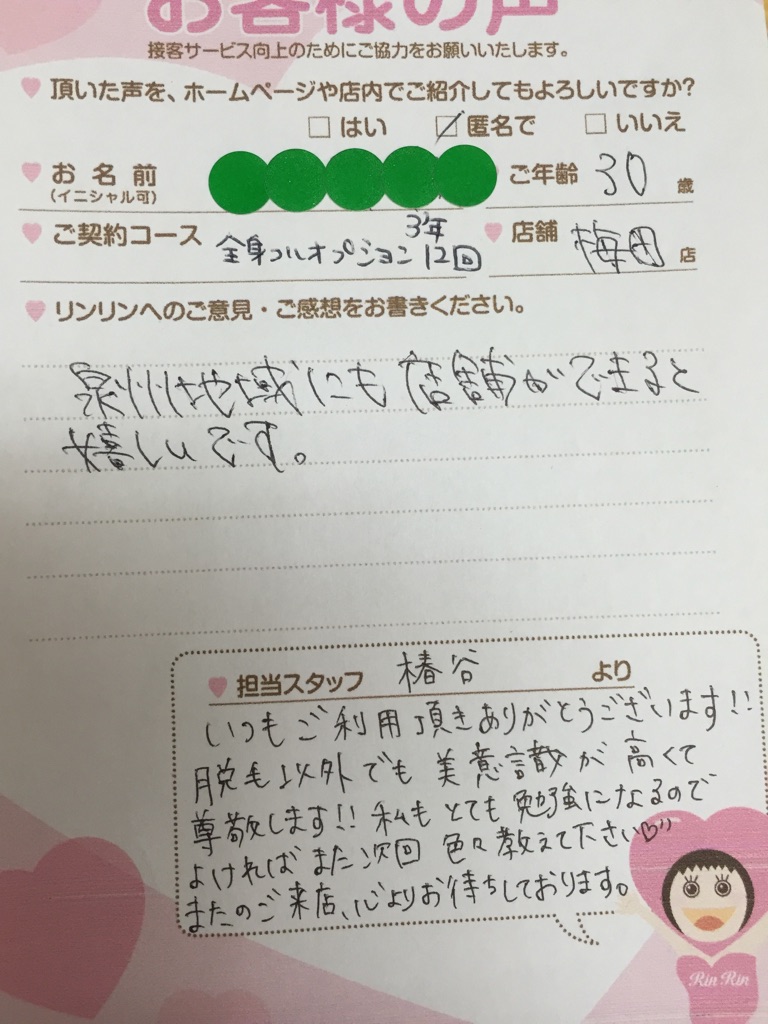 お客様の声
接客サービス向上のためにご協力をお願いいたします。
頂いた声を、ホームページや店内でご紹介してもよろしいですか?
□はい ☑匿名で □いいえ
お名前 ご年齢 30 歳
(イニシャル可)
ご契約コース 全身フルオプション 3年 12回 店舗 梅田 店
リンリンへのご意見・ご感想をお書きください。
泉州地域にも店舗ができると
嬉しいです。
担当スタッフ 椿谷 より
いつもご利用頂きありがとうございます!!
脱毛以外でも美意識が高くて
尊敬します!! 私もとても勉強になるので
よければまた次回 色々教えて下さい♡
またのご来店、心よりお待ちしております。
Rin Rin